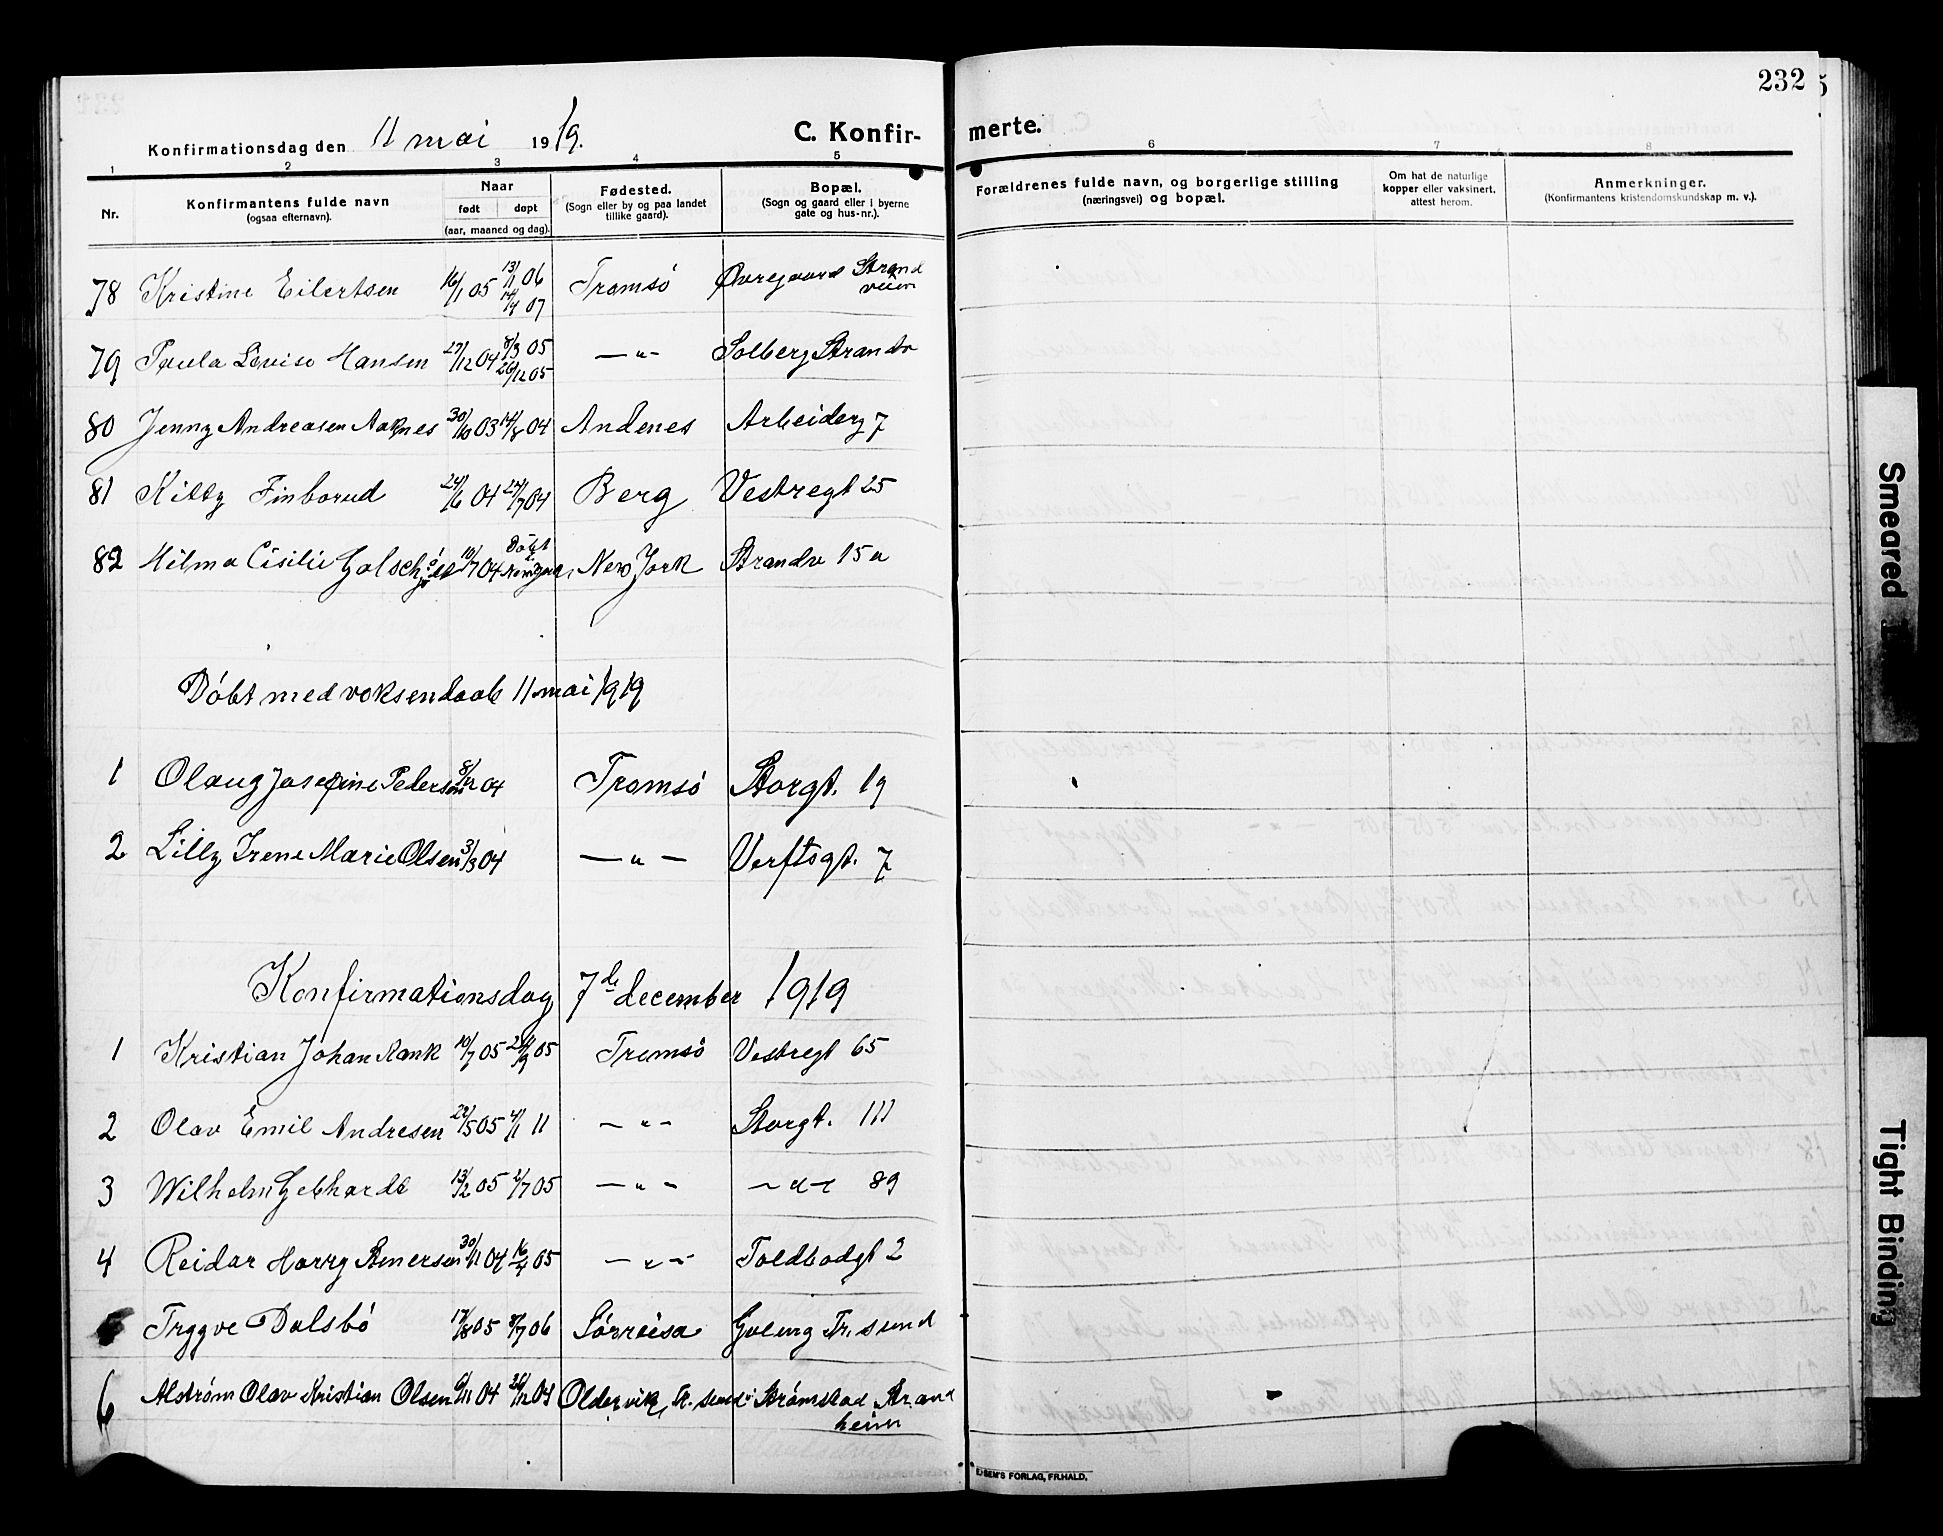 232
Konfirmationsdag den 11 mai 1919.
C. Konfirmerte.
1 2 3 4 5 6 7 8
Nr.
Konfirmantens fulde navn
(ogsaa efternavn).
Naar
født døpt
(aar, maaned og dag).
Fødested.
(Sogn eller by og paa landet
tillike gaard).
Bopæl.
(Sogn og gaard eller i byerne
gate og hus-nr.).
Forældrenes fulde navn, og borgerlige stilling
(næringsvei) og bopæl.
Om hat de naturlige
kopper eller vaksinert,
attest herom.
Anmerkninger.
(Konfirmantens kristendomskundskap m. v.).
78 Kristine Eilertsen 16/1 05 13/11 06 Tromsö Øvregaard Strand
14/4 07 veien
79 Paula Lovise Hansen 27/12 04 8/3 05 — " — Solberg Strandv
26/12 05
80 Jenny Andreasen Aaknes 30/10 03 14/8 04 Andenes Arbeiderg 7
81 Kitty Finborud 24/6 04 24/7 04 Berg Vestregt 25
82 Hilma Cisilie 10/7 04 Döbt i New York New York Strandv 15 a
Döbt med voksendaab 11 mai 1919
1 Olaug Josefine Pedersen 04 Tromsö Storgt. 19
2 Lilly Irene Marie Olsen 3/3 04 — " — Verftsgt. 7
Konfirmationsdag 7de december 1919
1 Kristian Johan Rank 10/7 05 05 Tromsö Vestregt 65
2 Olav Emil Andresen 22/5 05 4/1 11 — " — Storgt. 111
3 Wilhelm Gebhardt 13/2 05 2/7 05 — " — — " — 89
4 Reidar Harry 30/11 04 16/4 05 — " — Toldbodgt 2
Trygve Dalsbö 17/8 05 8/7 06 Sörreisa Tr.sund
6 Alström Olav Kristian Olsen 6/11 04 26/12 04 Oldervik, Tr. sund Strömstad Strand
heim
E. SEM'S FORLAG, FR.HALD.
Smeared
Tight Binding